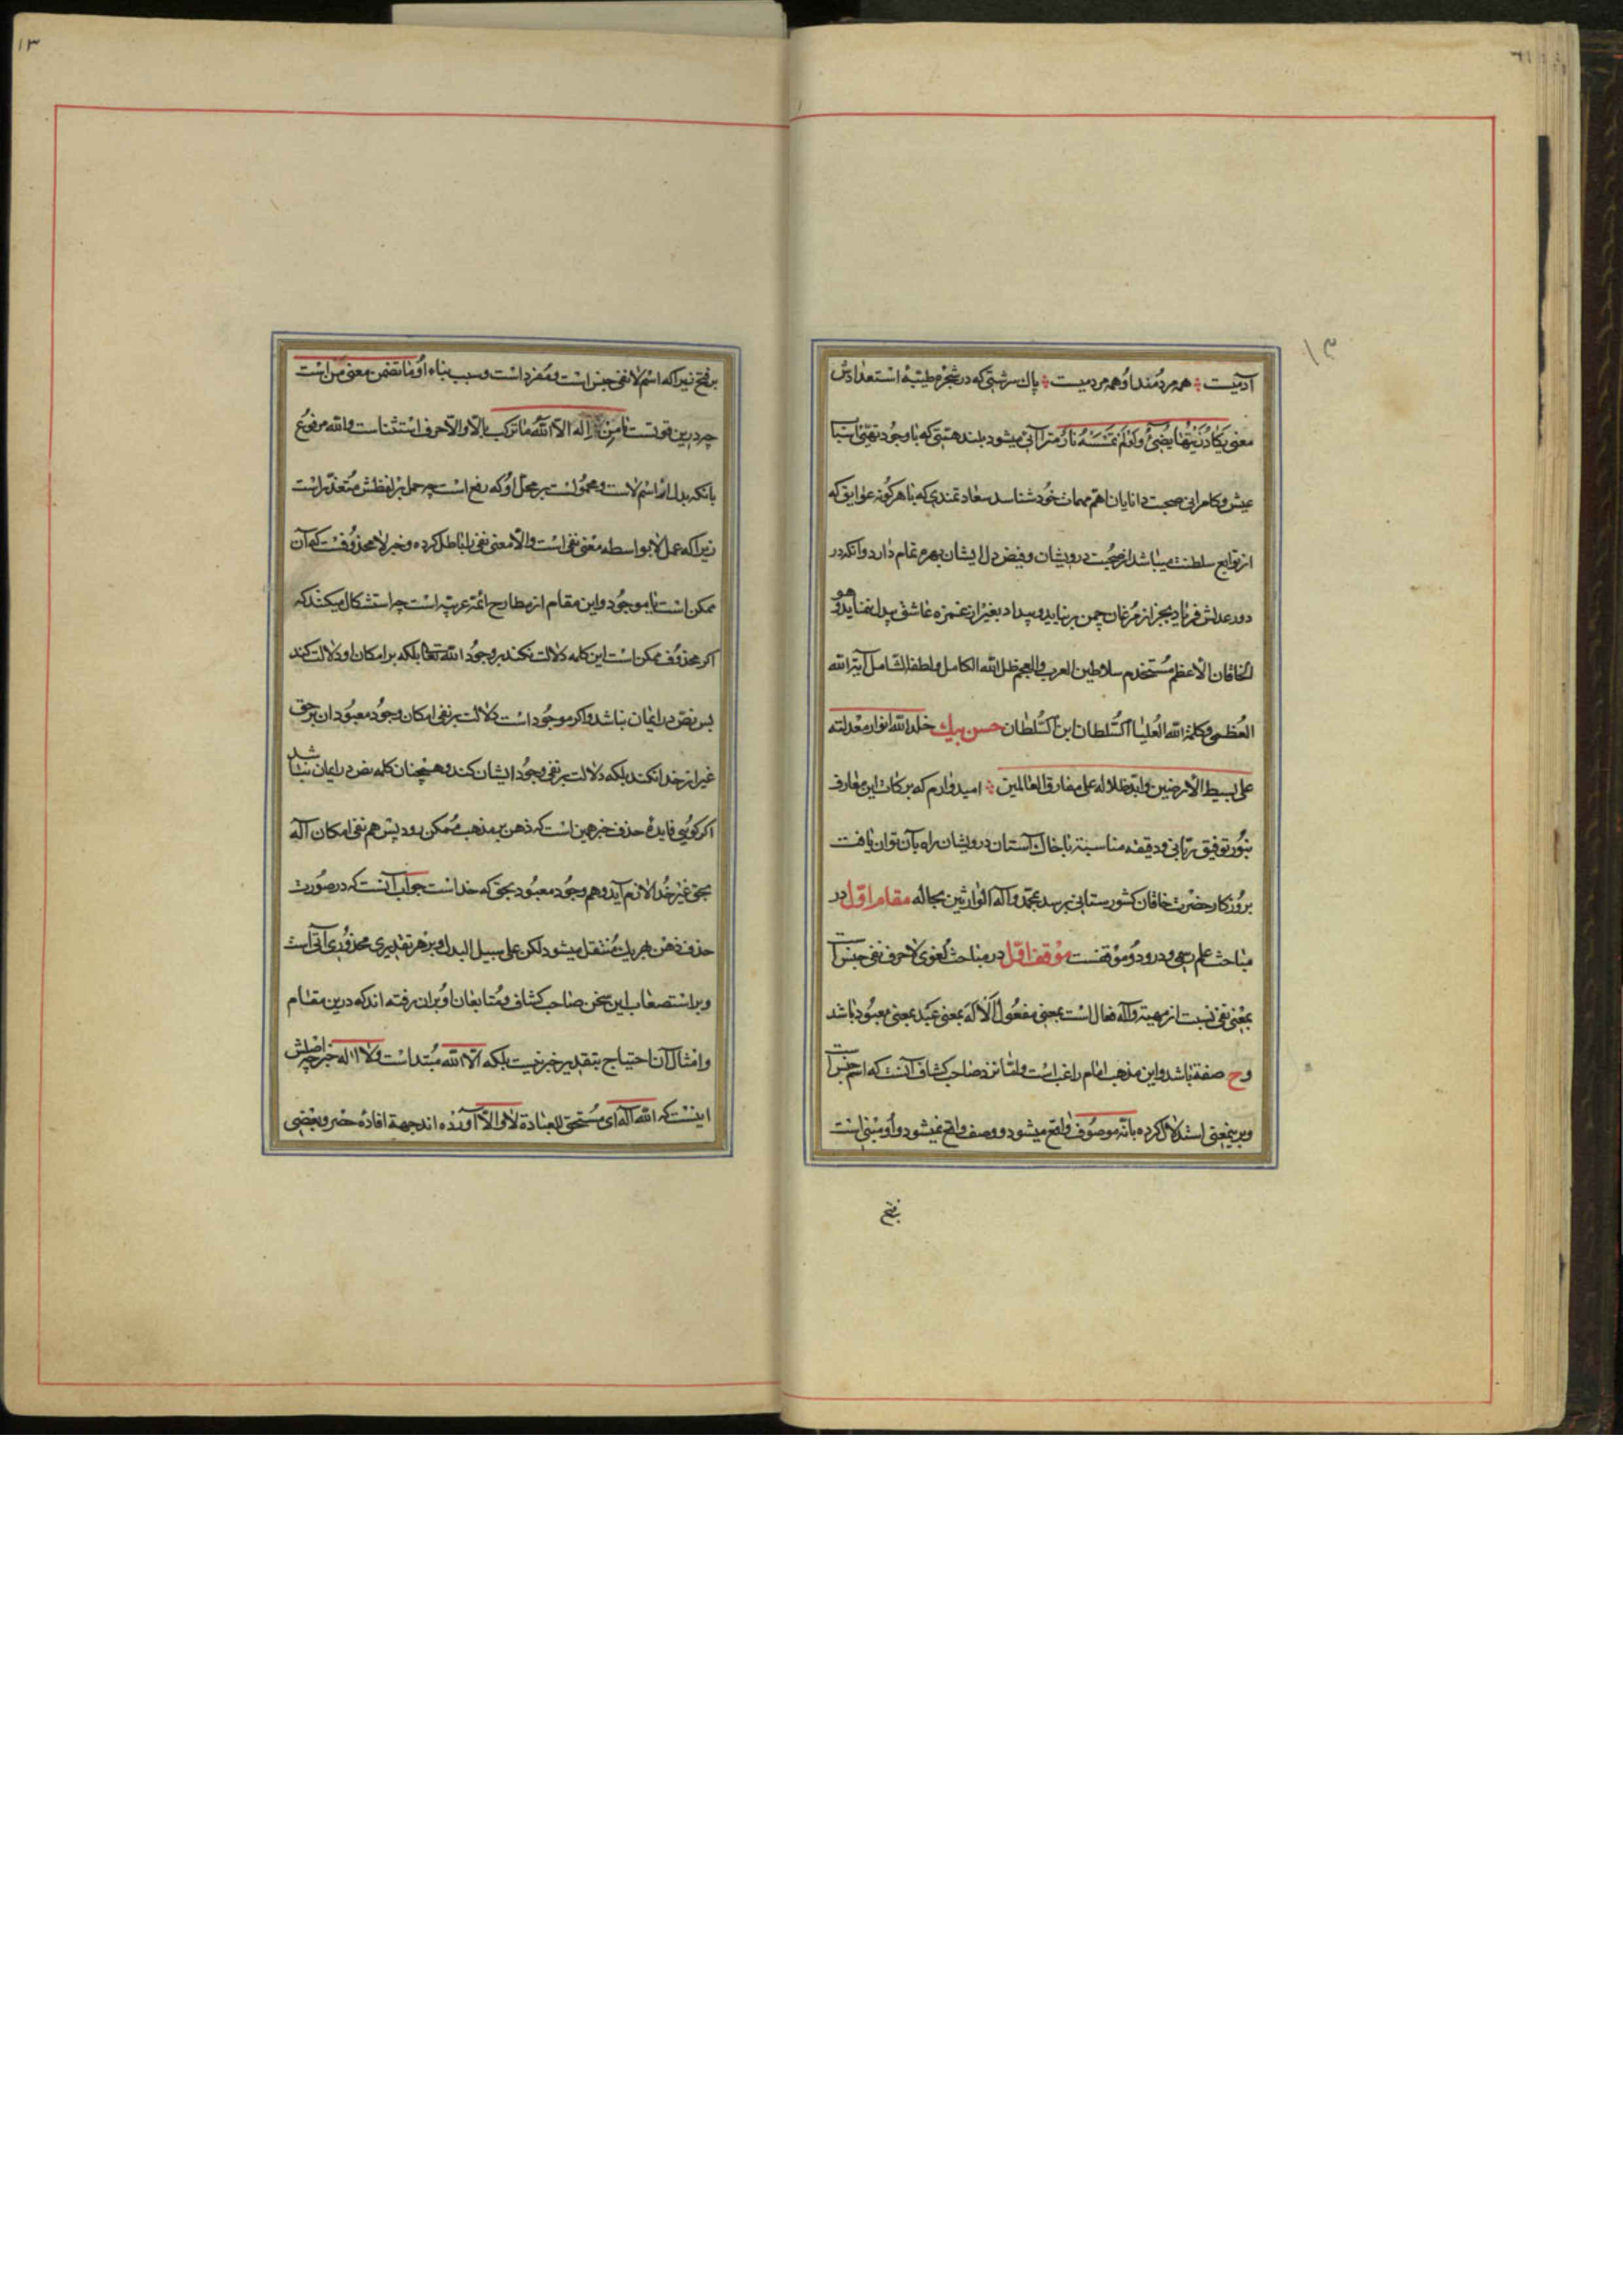 آدمیت ؞ همه مردمند او همه مردمیت ؞ پاك سرشتی که در شجرهٔ طیبهٔ استعدادش
معنی یکاد زیتها یضیء ولو لم تمسسه نار مترآئی میشود بلند همتی که با وجود تهیئ اسباب
عیش وکامرانی صحبت دانایان اهم مهمات خود شناسد سعادتمندی که با هر کونه عوایق که
از توابع سلطنت میباشد از صحبت درویشان وفیض دل ایشان بهرهٔ تمام دارد وانکه در
دور عدلش فریاد بجز از مرغان چمن برنیاید وبیداد بغیر از غمزه عاشق بیدل ننماید وهو
الخاقان الاعظم مستخدم سلاطین العرب والعجم ظل الله الکامل ولطفه الشامل آیة الله
العظمی وکلمة الله العلیا السلطان ابن السلطان حسن بیك خلد الله انوار معدلته
علی بسیط الارضین وابد ظلاله علی مفارق العالمین ؞ امیدوارم که برکات این معارف
بنور توفیق ربانی ودقیقه مناسبتی با خاك آستان درویشان راه بآن توان یافت
بروزکار حضرت خاقان کشورستانی برسد بمحمد وآله الوارثین بحاله مقام اول در
مباحث علم رسمی ودرو دو موقفست موقف اول در مباحث لغوی لا حرف نفی جنس است
بمعنی نفی نسبت از مهیة وآله فعال است بمعنی مفعول الاله بمعنی عبد بمعنی معبود باشد
وح صفة باشد واین مذهب امام راغب است واما نزد صاحب کشاف آنست که اسم جنس است
وبرینمعنی استدلال کرده بانه موصوف واقع میشود ووصف واقع نمیشود واو مبنی است
بر فتح
بر فتح زیرا که اسم لا نفی جنس است ومفرد است وسبب بناء او یا تضمن معنی من است
چه درین قوتست ما من اله الا الله یا ترکب بالا والا حرف استثناست والله مرفوع
بانکه بدل از اسم لاست ومحمول است بر محل او که رفع است چه حمل بر لفظش متعذر است
زیرا که عمل لا بواسطه معنی نفی است والا معنی نفی را باطل کرده وخبر لا محذوفست که آن
ممکن است یا موجود واین مقام از مطارح ائمه عربیه است چه استشکال میکنند که
اکر محذوف ممکن است این کلمه دلالت نکند بر وجود الله تعالی بلکه بر امکان او دلالت کند
پس نص در ایمان نباشد واکر موجود است دلالت بر نفی امکان وجود معبودان بر حق
غیر از خدا نکند بلکه دلالت بر نفی وجود ایشان کند وهمچنان کلمه نص در ایمان نباشد
اکر کویی فایدهٔ حذف خبر همین است که ذهن بهر مذهب ممکن رود پس هم نفی امکان آله
بحق غیر خدا لازم آید وهم وجود معبود بحق که خداست جواب آنست که در صورت
حذف ذهن بهر یك منتقل میشود لکن علی سبیل البدل وبر هر تقدیری محذوری آتی است
وبر استصعاب این سخن صاحب کشاف ومتابعان او بران رفته اند که درین مقام
وامثال آن احتیاج بتقدیر خبر نیست بلکه الا الله مبتداست ولا اله خبر چه اصلش
اینست که الله آله ای مستحق للعبادة لا والا آورده اند جهة افادهٔ حصر وبعضی